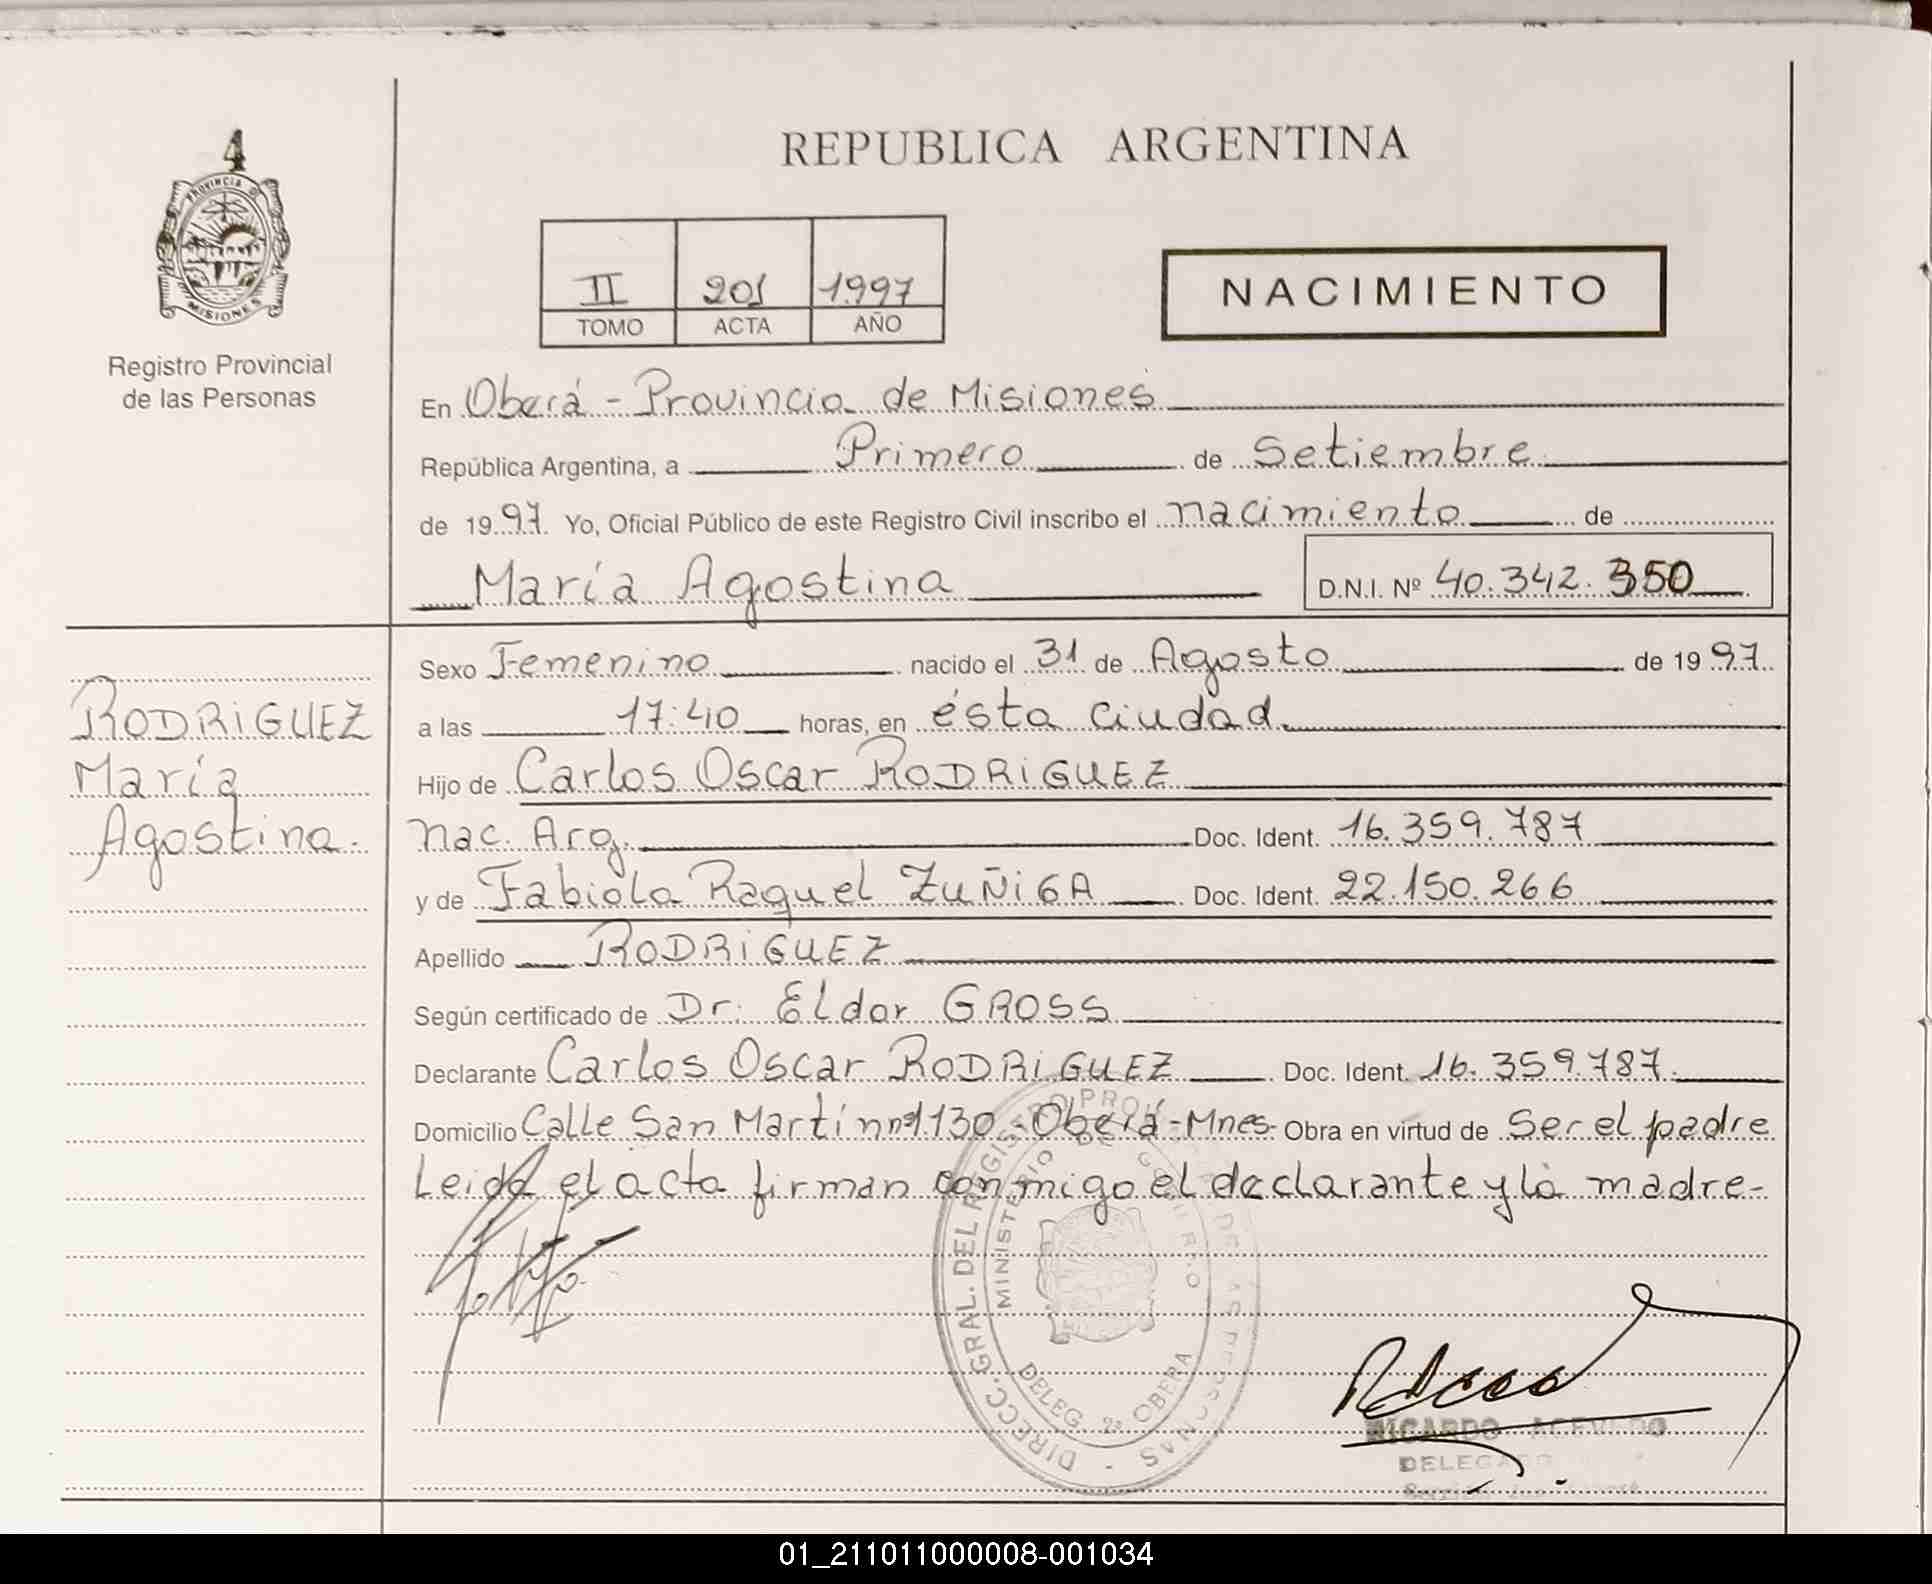 4
PROVINCIA DE
MISIONES
Registro Provincial
de las Personas
REPUBLICA ARGENTINA
II 201 1997
TOMO ACTA AÑO
NACIMIENTO
En Oberá - Provincia de Misiones
República Argentina, a Primero de Setiembre
de 1997. Yo, Oficial Público de este Registro Civil inscribo el nacimiento de
María Agostina D.N.I. Nº 40.342.350
Sexo Femenino nacido el 31 de Agosto de 1997
a las 17:40 horas, en ésta ciudad.
Hijo de Carlos Oscar RODRIGUEZ
Nac. Arg. Doc. Ident. 16.359.787
y de Fabiola Raquel ZUÑIGA Doc. Ident. 22.150.266
Apellido RODRIGUEZ
Según certificado de Dr. Eldor GROSS
Declarante Carlos Oscar RODRIGUEZ Doc. Ident. 16.359.787.
Domicilio Calle San Martín nº1130 - Oberá - Mnes - Obra en virtud de Ser el padre
Leida el acta firman conmigo el declarante y la madre-
RODRIGUEZ
María
Agostina.
DIRECC. GRAL. DEL REGISTRO PROV. DE LAS PERSONAS
MINISTERIO DE GOBIERNO
DELEG. 2ª OBERA
RICARDO ACEVEDO
DELEGADO
01_211011000008-001034